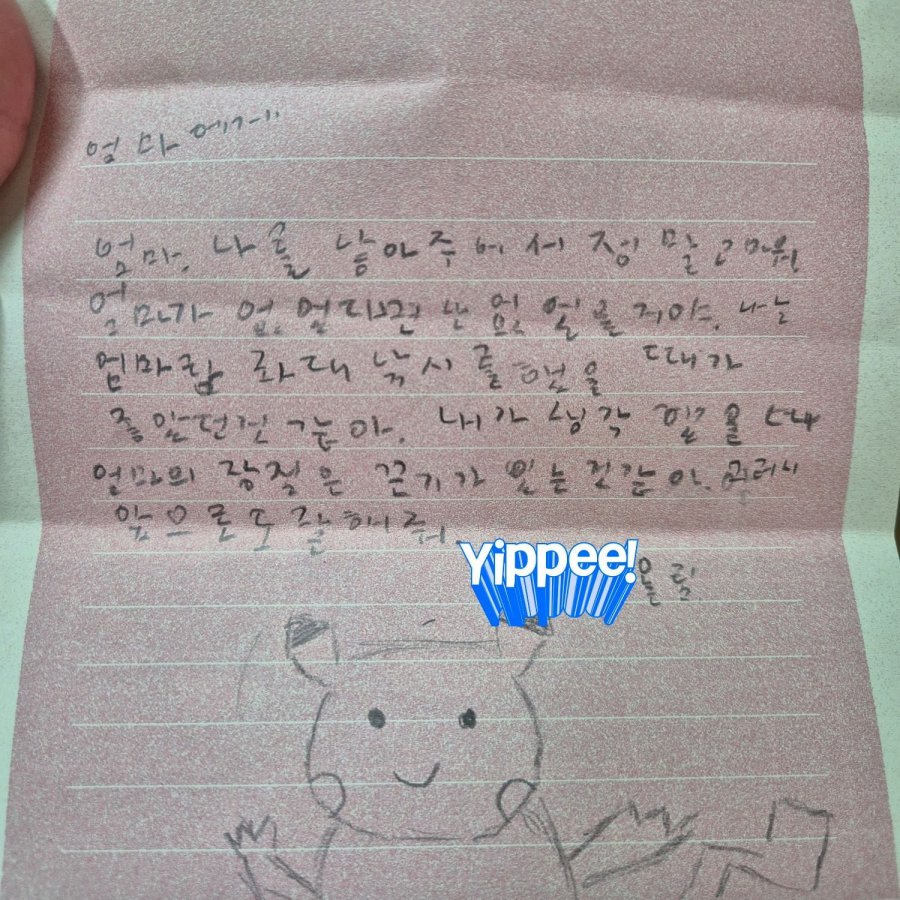 엄마에게
엄마, 나를 낳아주어서 정말 고마워
엄마가 없었더라면 난 없었을거야. 나는
엄마랑 같이 낚시를 했을 때가
좋았던것 같아. 내가 생각 했을 때
엄마의 장점은 끈기가 있는것같아. 그러니
앞으로도 잘해줘.
Yippee!
올림